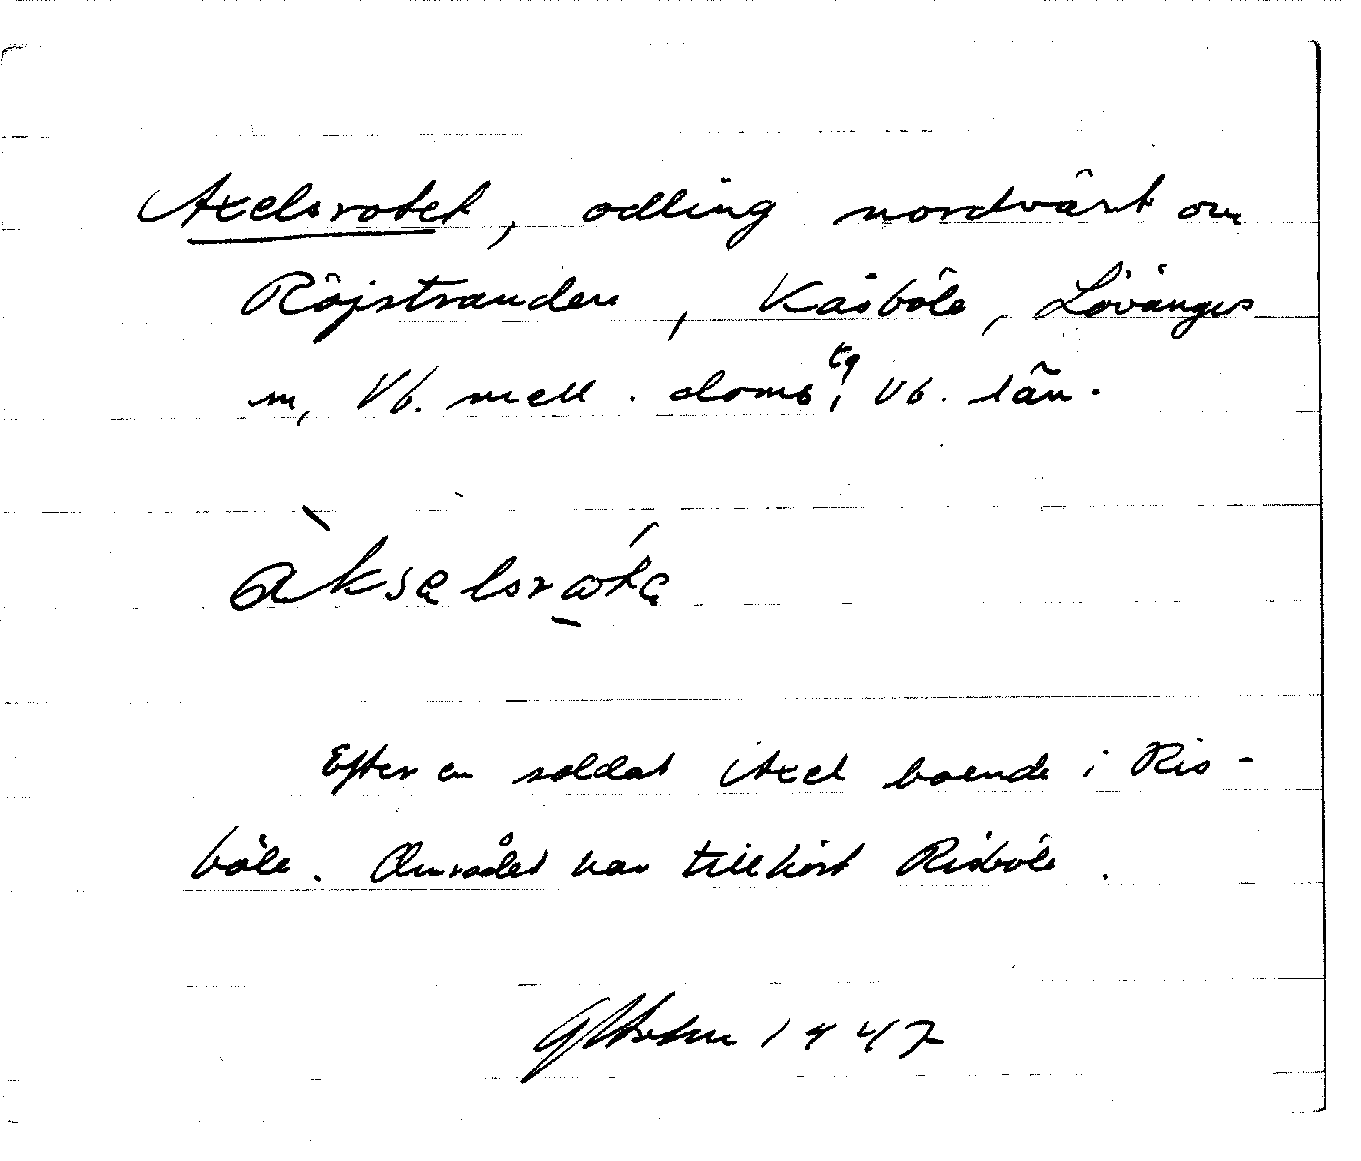 Axelsrotet, odling nordvärt om
Röjstranden, Kåsböle, Lövångers
sn, Vb. mell. doms tg, Vb. län.
àksęlsrώ̲tę
Efter en soldat Axel boende i Ris-
böle. Området har tillhört Risböle.
1947